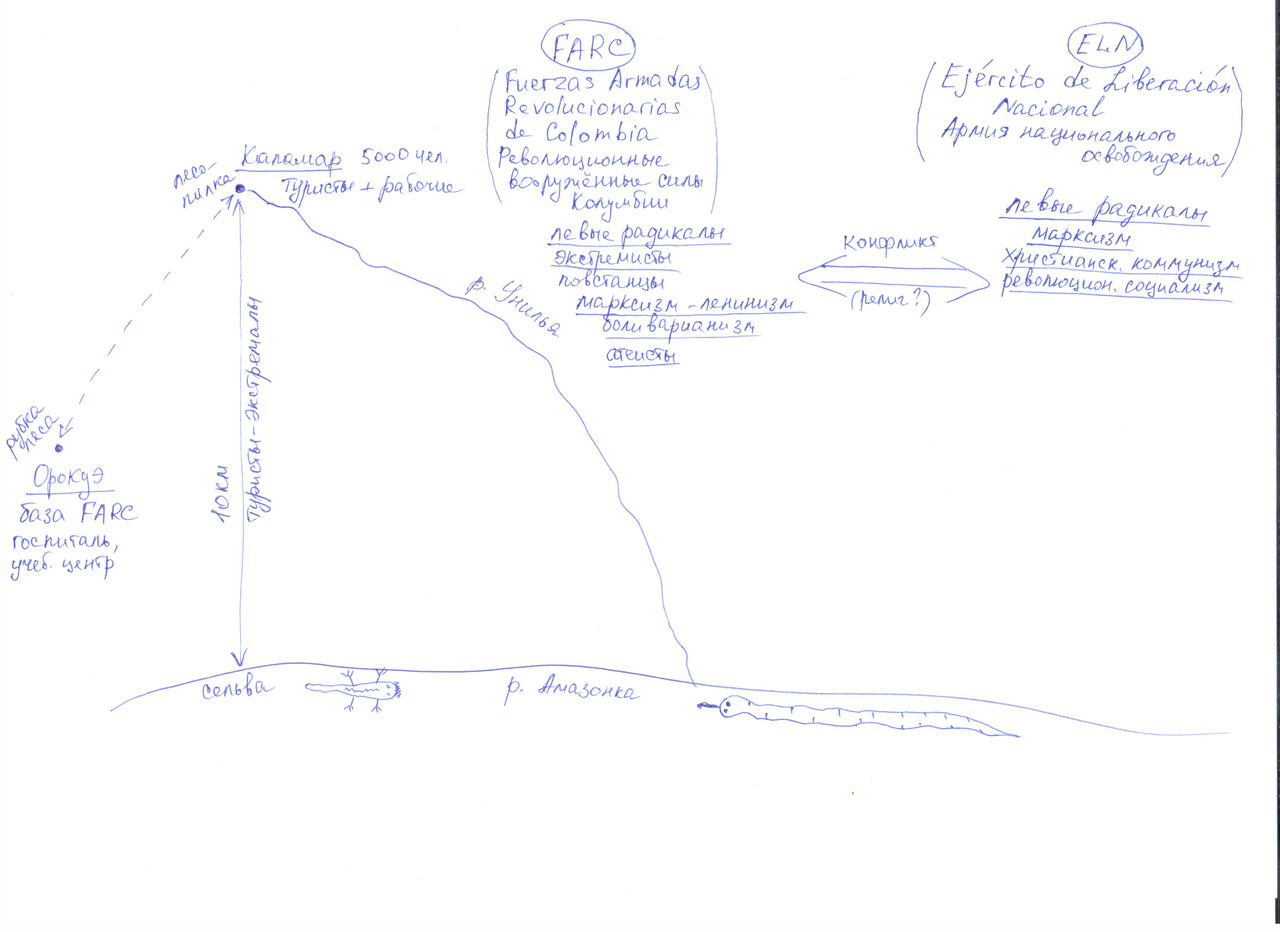 FARC
(Fuerzas Armadas
Revolucionarias
de Colombia
Революционные
вооружённые силы
Колумбии)
левые радикалы
экстремисты
повстанцы
марксизм-ленинизм
боливарианизм
атеисты
ELN
(Ejército de Liberación
Nacional
Армия национального
освобождения)
левые радикалы
марксизм
христианск. коммунизм
революцион. социализм
конфликт
(религ?)
лесо-
пилка
Каламар 5000 чел.
Туристы + рабочие
р. Унилья
10 км
Туристы-экстремалы
рубка
леса
Орокуэ
база FARC
госпиталь,
учеб. центр
сельва
р. Амазонка